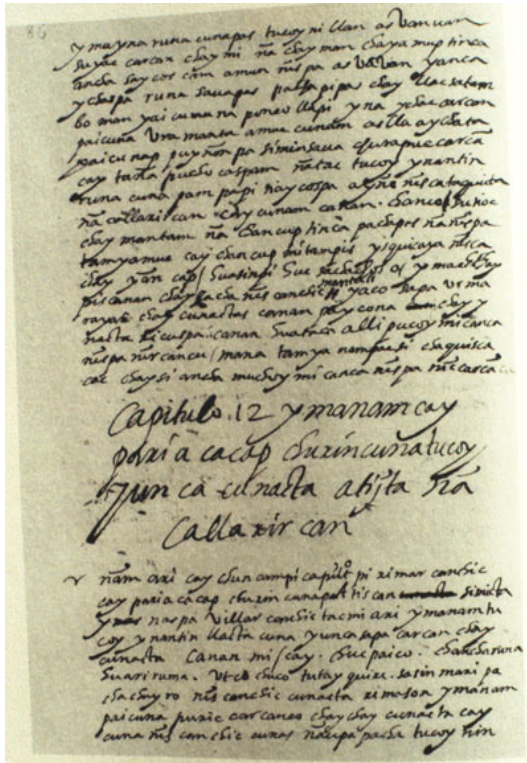 86
y mayna runa cunapas tucoy ni llan as Vanvan
suyac carcan chay mi ña chay man chaya muptinca
ancha say cos cam amun nispa as Vaban yanca
y chaspa runa
bo man yai cunan na punco llapi y na
pai cuña Vra manta amuc cunam as lla aychata
paicunap puyñon pa simin saua churapuc carcã
cay tana pucho caspam ñatac tucoy ynantin
runa cuna pam papi tiaycospa ayño nisca taquita
ña callarircan chay cunam canan
chay mantam ña chancup tincã pachapas ña nispa
tamyamuc cay chancup mitampis ysquicaya nisca
chay
pis canan chay sacha nis conchic mantas yaco
rayac chay cunactas canan pay cona chay
huata alli pucoy mi canca
nispa nir cancu / mana tamya nampac si chaquisca
cac chaysi ancha muchoy mi canca nispa nic carcã
Capitulo .12 ymanam cay
paria cacap churin cuna tucoy
yunca cunacta atijta ña
Callarir can
ñam ari cay chuncampi capitulo pi rimar conchic
cay paria cacap churin cunap atiscan simicta
naspa Villar conchic tacmi ari ymanam tu
coy ynantin llacta cuna yunca sapa carcan chay
cunacta Canan mi / cay. chuc paico. chancha runa
huari ruma. Vtco chuco tutay quire. sasin mari pa
chachuyro nis conchic cunacta rimason ymanam
paicuna puric carcanco chay chay cunacta cay
cuna nis con chic cunas naupa pacha tucoy hin